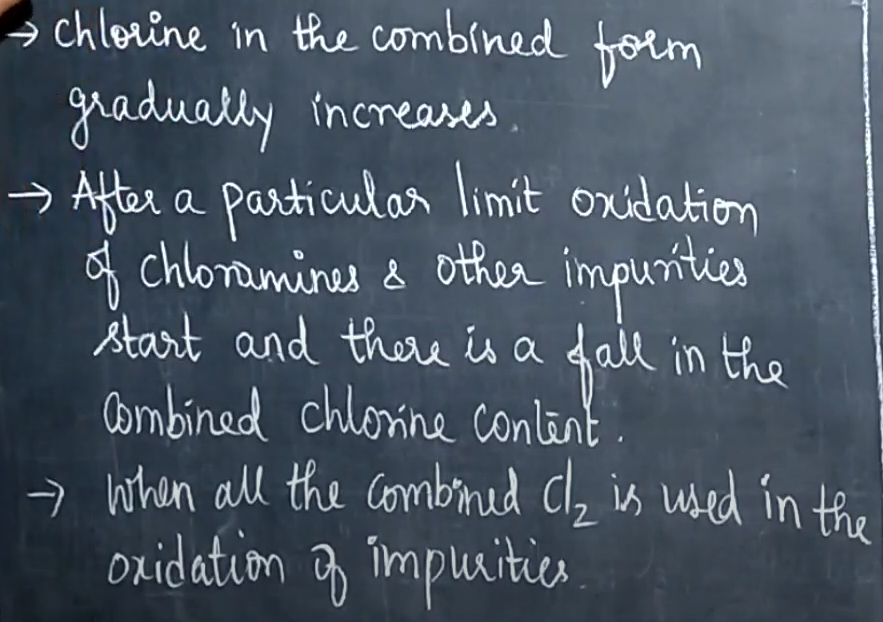 → Chlorine in the combined form
gradually increases.
→ After a particular limit oxidation
of chloramines & other impurities
start and there is a fall in the
Combined chlorine content.
→ When all the combined Cl₂ is used in the
oxidation of impurities.